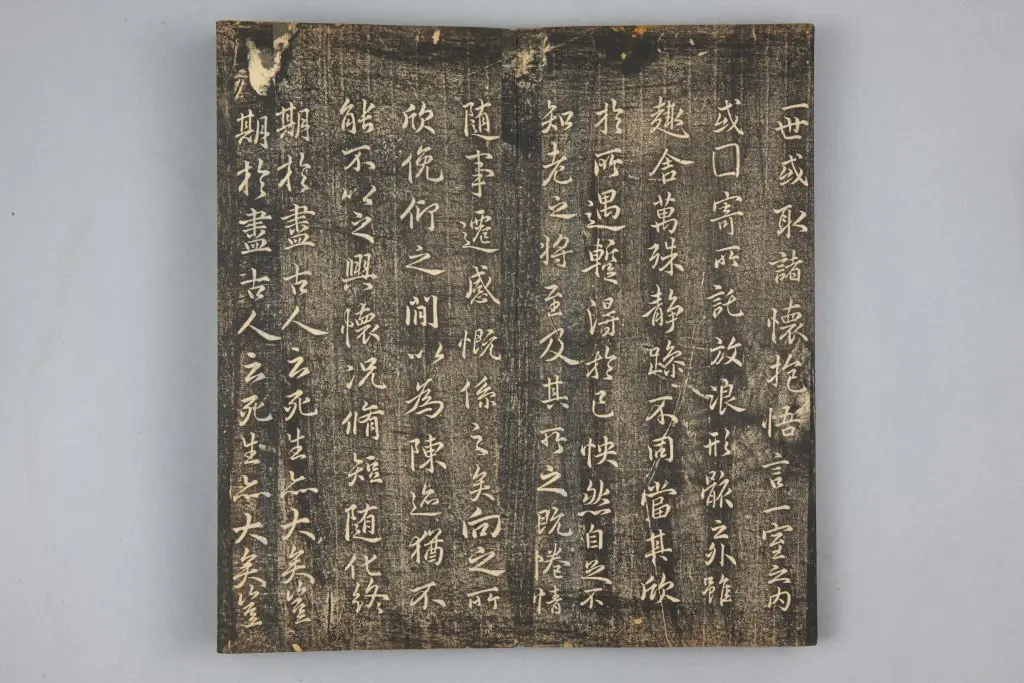 一世或取諸懷抱悟言一室之内
或囗寄所託放浪形骸之外雖
趣舍萬殊静躁不同當其欣
於所遇蹔得於己怏然自足不
知老之將至及其所之既惓情
随事遷感慨係之矣向之所
欣俛仰之閒以為陳迹猶不
能不以之興懷況脩短随化終
期於盡古人云死生亦大矣豈
期於盡古人云死生亦大矣豈